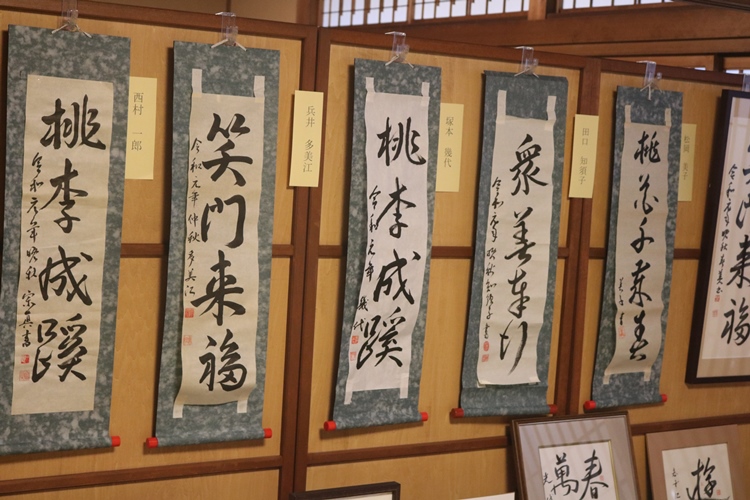 桃李成蹊
令和元年晩秋 宗眞書
西村 一郎
笑門来福
令和元年仲秋 多美江
兵井 多美江
桃李成蹊
令和元年 幾代
塚本 幾代
衆善奉行
令和元年晩秋
田口 知須子
桃花千来春
門来福
萬春
遊